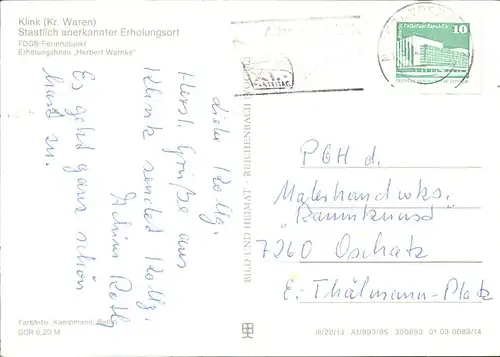 Klink (Kr. Waren)
Staatlich anerkannter Erholungsort
FDGB-Ferienobjekt
Erholungsheim „Herbert Warnke"
Liebe Kollg.
Herzl. Grüße aus
Klink sendet Kollg.
Roth
Es geht ganz schön
zu.
Farbfoto: Kampmann, Berlin
DDR 0,20 M
BILD UND HEIMAT · REICHENBACH
III/26/14 A1/893/85 300892 01 03 0083/14
10
PARTEITAG
PGH d.
Malerhandwks.
„Raumkunst"
7260 Oschatz
E.-Thälmann-Platz